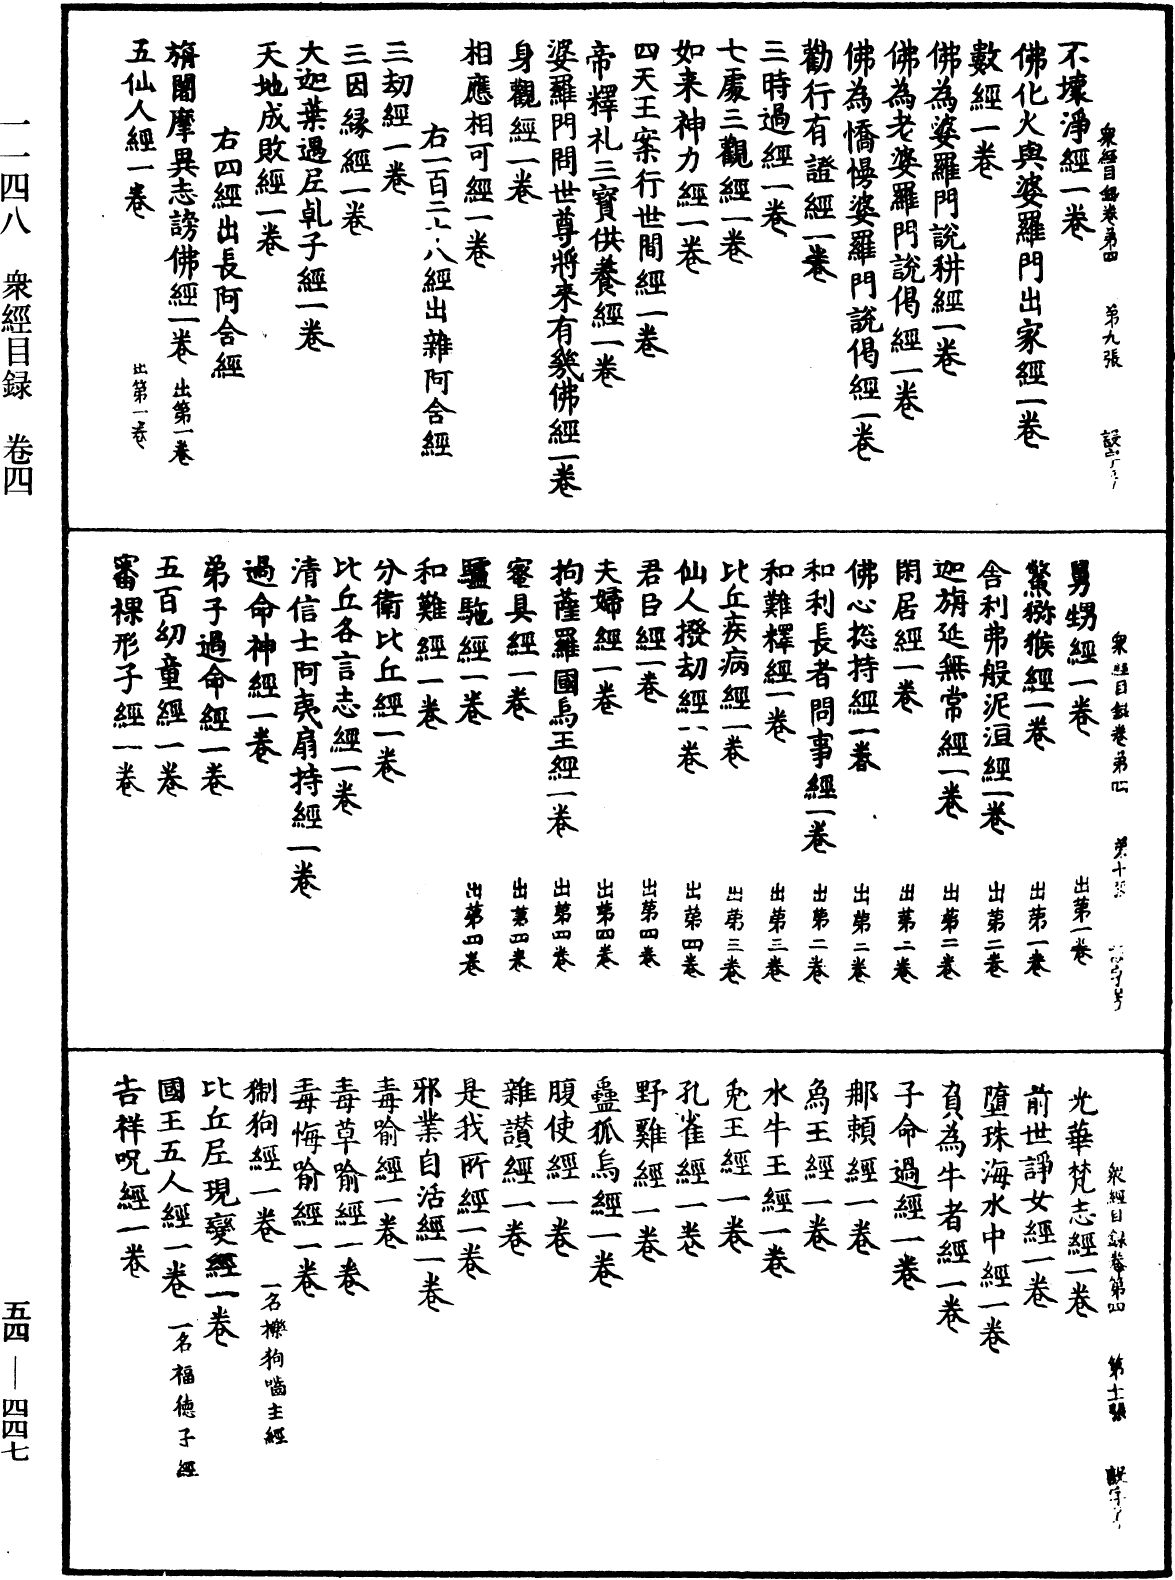 一一四八 衆經目録 卷四
五四—四四七
衆經目録卷第四 第九張
不壞淨經一卷
佛化火與婆羅門出家經一卷
數經一卷
佛為婆羅門說耕經一卷
佛為老婆羅門說偈經一卷
佛為憍慢婆羅門說偈經一卷
勸行有證經一卷
三時過經一卷
七處三觀經一卷
如来神力經一卷
四天王案行世間經一卷
帝釋礼三寳供養經一卷
婆羅門問世尊將来有㡬佛經一卷
身觀經一卷
相應相可經一卷
右一百二十八經出雜阿含經
三劫經一卷
三因縁經一卷
大迦葉遇尼乹子經一卷
天地成敗經一卷
右四經出長阿含經
旃闍摩異志謗佛經一卷 出第一卷
五仙人經一卷 出第一卷
衆經目録卷第四 第十張
舅甥經一卷 出第一卷
鱉獼猴經一卷 出第一卷
舎利弗般泥洹經一卷 出第二卷
迦旃延無常經一卷 出第二卷
閑居經一卷 出第二卷
佛心捴持經一卷 出第二卷
和利長者問事經一卷 出第二卷
和難釋經一卷 出第三卷
比丘疾病經一卷 出第三卷
仙人撥劫經一卷 出第四卷
君臣經一卷 出第四卷
夫婦經一卷 出第四卷
拘薩羅國烏王經一卷 出第四卷
蜜具經一卷 出第四卷
驢駞經一卷 出第四卷
和難經一卷
分衛比丘經一卷
比丘各言志經一卷
清信士阿夷扇持經一卷
過命神經一卷
弟子過命經一卷
五百幼童經一卷
審裸形子經一卷
衆經目録卷第四 第十一張
光華梵志經一卷
前世諍女經一卷
墮珠海水中經一卷
負為牛者經一卷
子命過經一卷
那賴經一卷
烏王經一卷
水牛王經一卷
兎王經一卷
孔雀經一卷
野雞經一卷
蠱狐烏經一卷
腹使經一卷
雜讃經一卷
是我所經一卷
邪業自活經一卷
毒喻經一卷
毒草喻經一卷
毒悔喻經一卷
猘狗經一卷 一名㩧狗嚙主經
比丘尼現變經一卷
國王五人經一卷 一名福徳子經
吉祥呪經一卷